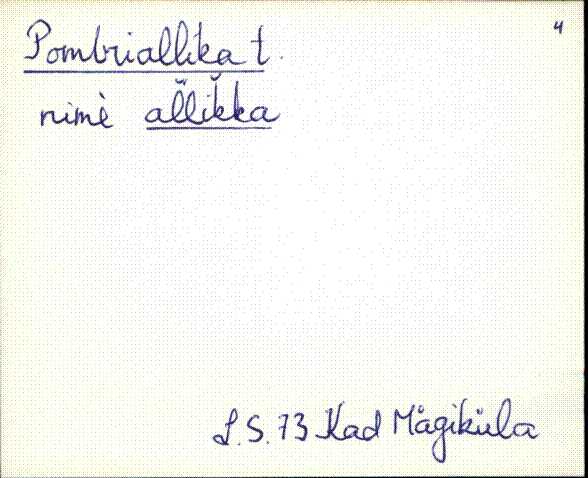 4
Pombriallika t.
nimè al̆lik̆ka
L.S. 73 Kad Mägiküla